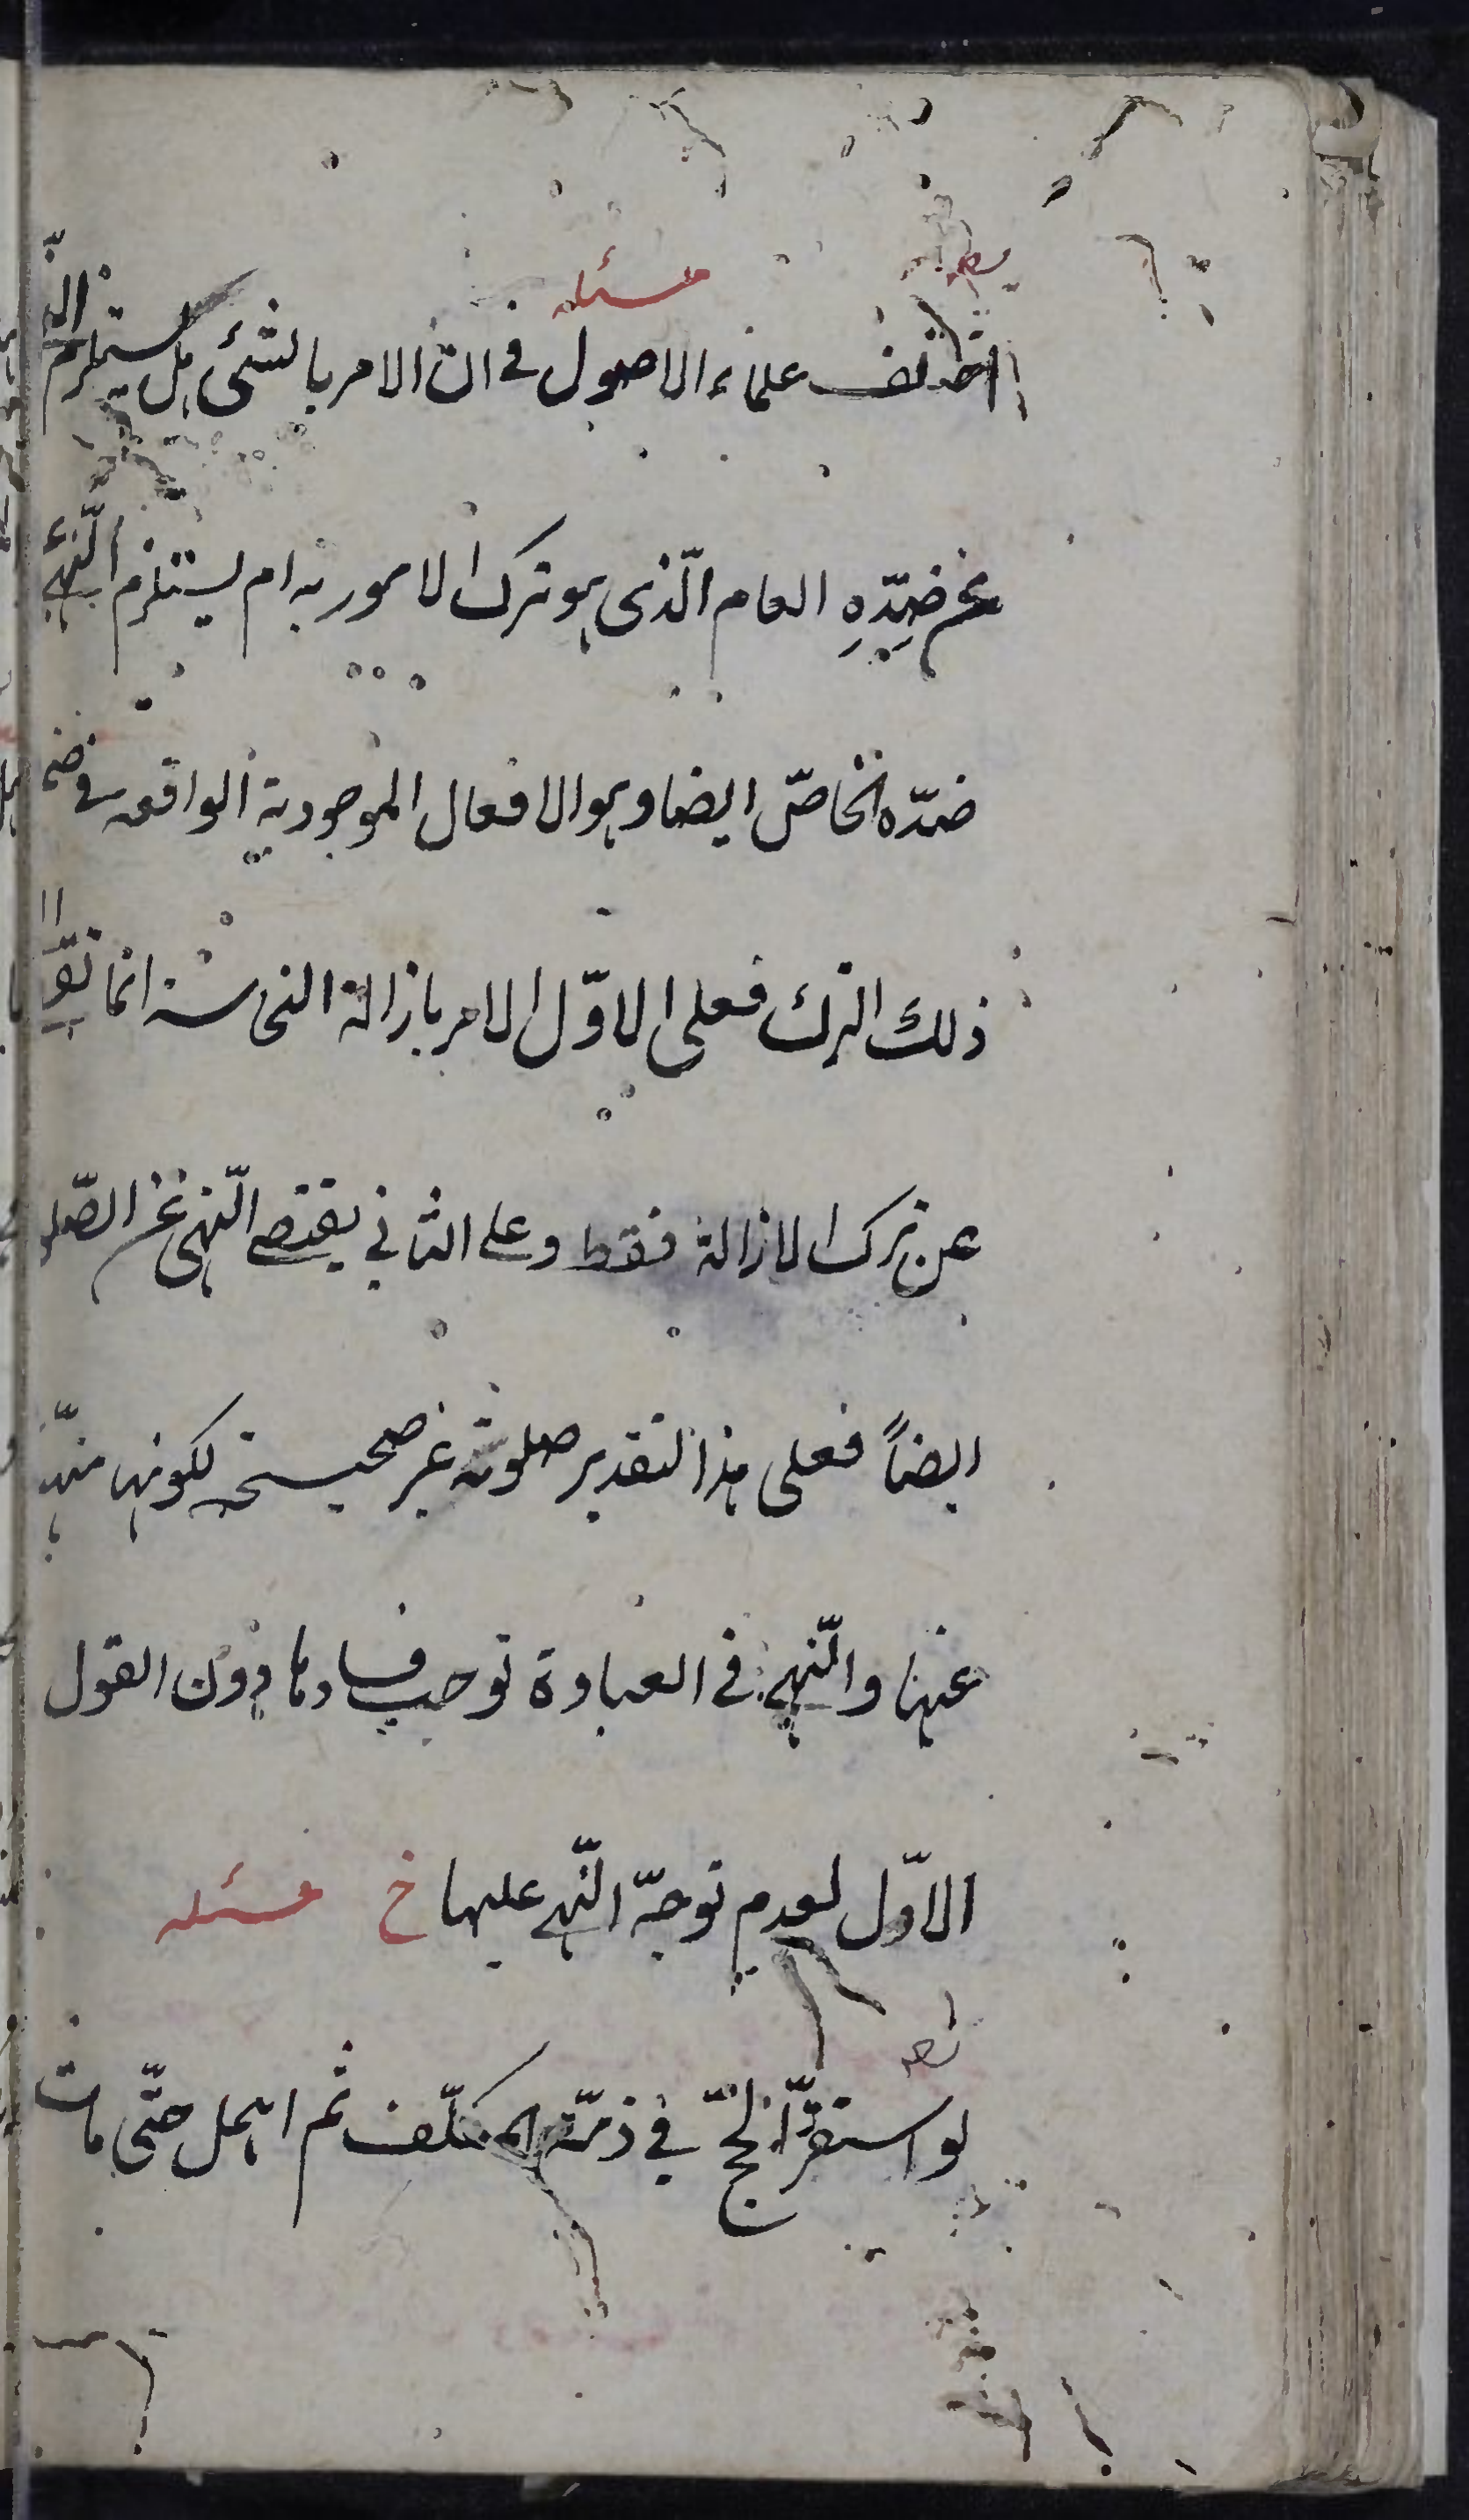 مسئله
اختلف علماء الاصول في ان الامر بالشئ هل يستلزم النّهى
عن ضدِّهِ العام الّذى هو ترك الامور به ام يستلزم النّهى
ضدّه الخاصّ ايضا وهو الافعال الموجودية الواقعه في ضمن
ذلك الترك فعلى الاوّل الامر بازالة النجاسة انما
عن ترك الازالة فقط وعلى الثاني يقتضى النّهى عن الصّلو
ايضاً فعلى هذا التقدير صلوته غير صحيحة لكونها منهيّا
عنها والنّهى في العبادة توجب فسادها دون القول
الاوّل لعدم توجّه النّهى عليها خ مسئله
لو استقرّ الحجّ في ذمّة المكلّف ثم اهمل حتّى مات